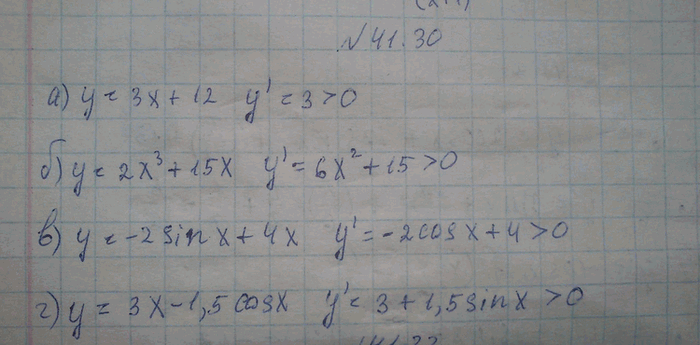 №41.30
а) y = 3x + 12 y' = 3 > 0
б) y = 2x³ + 15x y' = 6x² + 15 > 0
в) y = -2 sin x + 4x y' = -2cos x + 4 > 0
г) y = 3x - 1,5 cos x y' = 3 + 1,5 sin x > 0